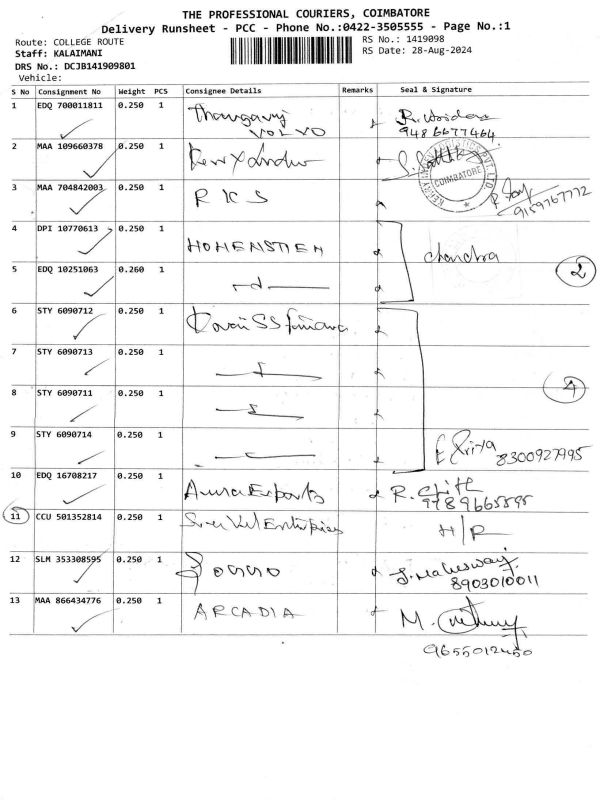 THE PROFESSIONAL COURIERS, COIMBATORE
Delivery Runsheet - PCC - Phone No.:0422-3505555 - Page No.:1
Route: COLLEGE ROUTE
RS No.: 1419098
Staff: KALAIMANI
RS Date: 28-Aug-2024
DRS No.: DCJB141909801
Vehicle:
S No Consignment No Weight PCS Consignee Details Remarks Seal & Signature
1 EDQ 700011811 0.250 1
VOLVO
9486677464
2 MAA 109660378 0.250 1
COIMBATORE
3 MAA 704842003 0.250 1 RKS
9159767772
4 DPI 10770613 0.250 1 HOHENSTIEN
chandra
5 EDQ 10251063 0.260 1
2
6 STY 6090712 0.250 1
7 STY 6090713 0.250 1
8 STY 6090711 0.250 1
4
9 STY 6090714 0.250 1
Priya 8300927995
10 EDQ 16708217 0.250 1 Aura Exports R.
9789665595
11 CCU 501352814 0.250 1 H/R
12 SLM 353308595 0.250 1 J. Maheswari
8903010011
13 MAA 866434776 0.250 1 ARCADIA M.
9655012450